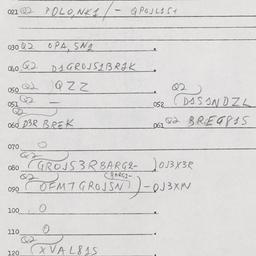 021 Q2 POLO,NK1/- GPOJL151
030 Q2 OPA, SN1
040 Q2 D1GROJS1BR2K
050 Q2 QZZ
051 Q2 -
052 Q2 DAS1NDZL
060 Q2 D3R BREK
061 Q2 BREG815
070 O
080 Q2 GROJS3RBARG2- DJ3X3R
090 Q2 OFMTGROJSN BARG2- -DJ3XN
100 O
110 O
120 Q2 XVAL815